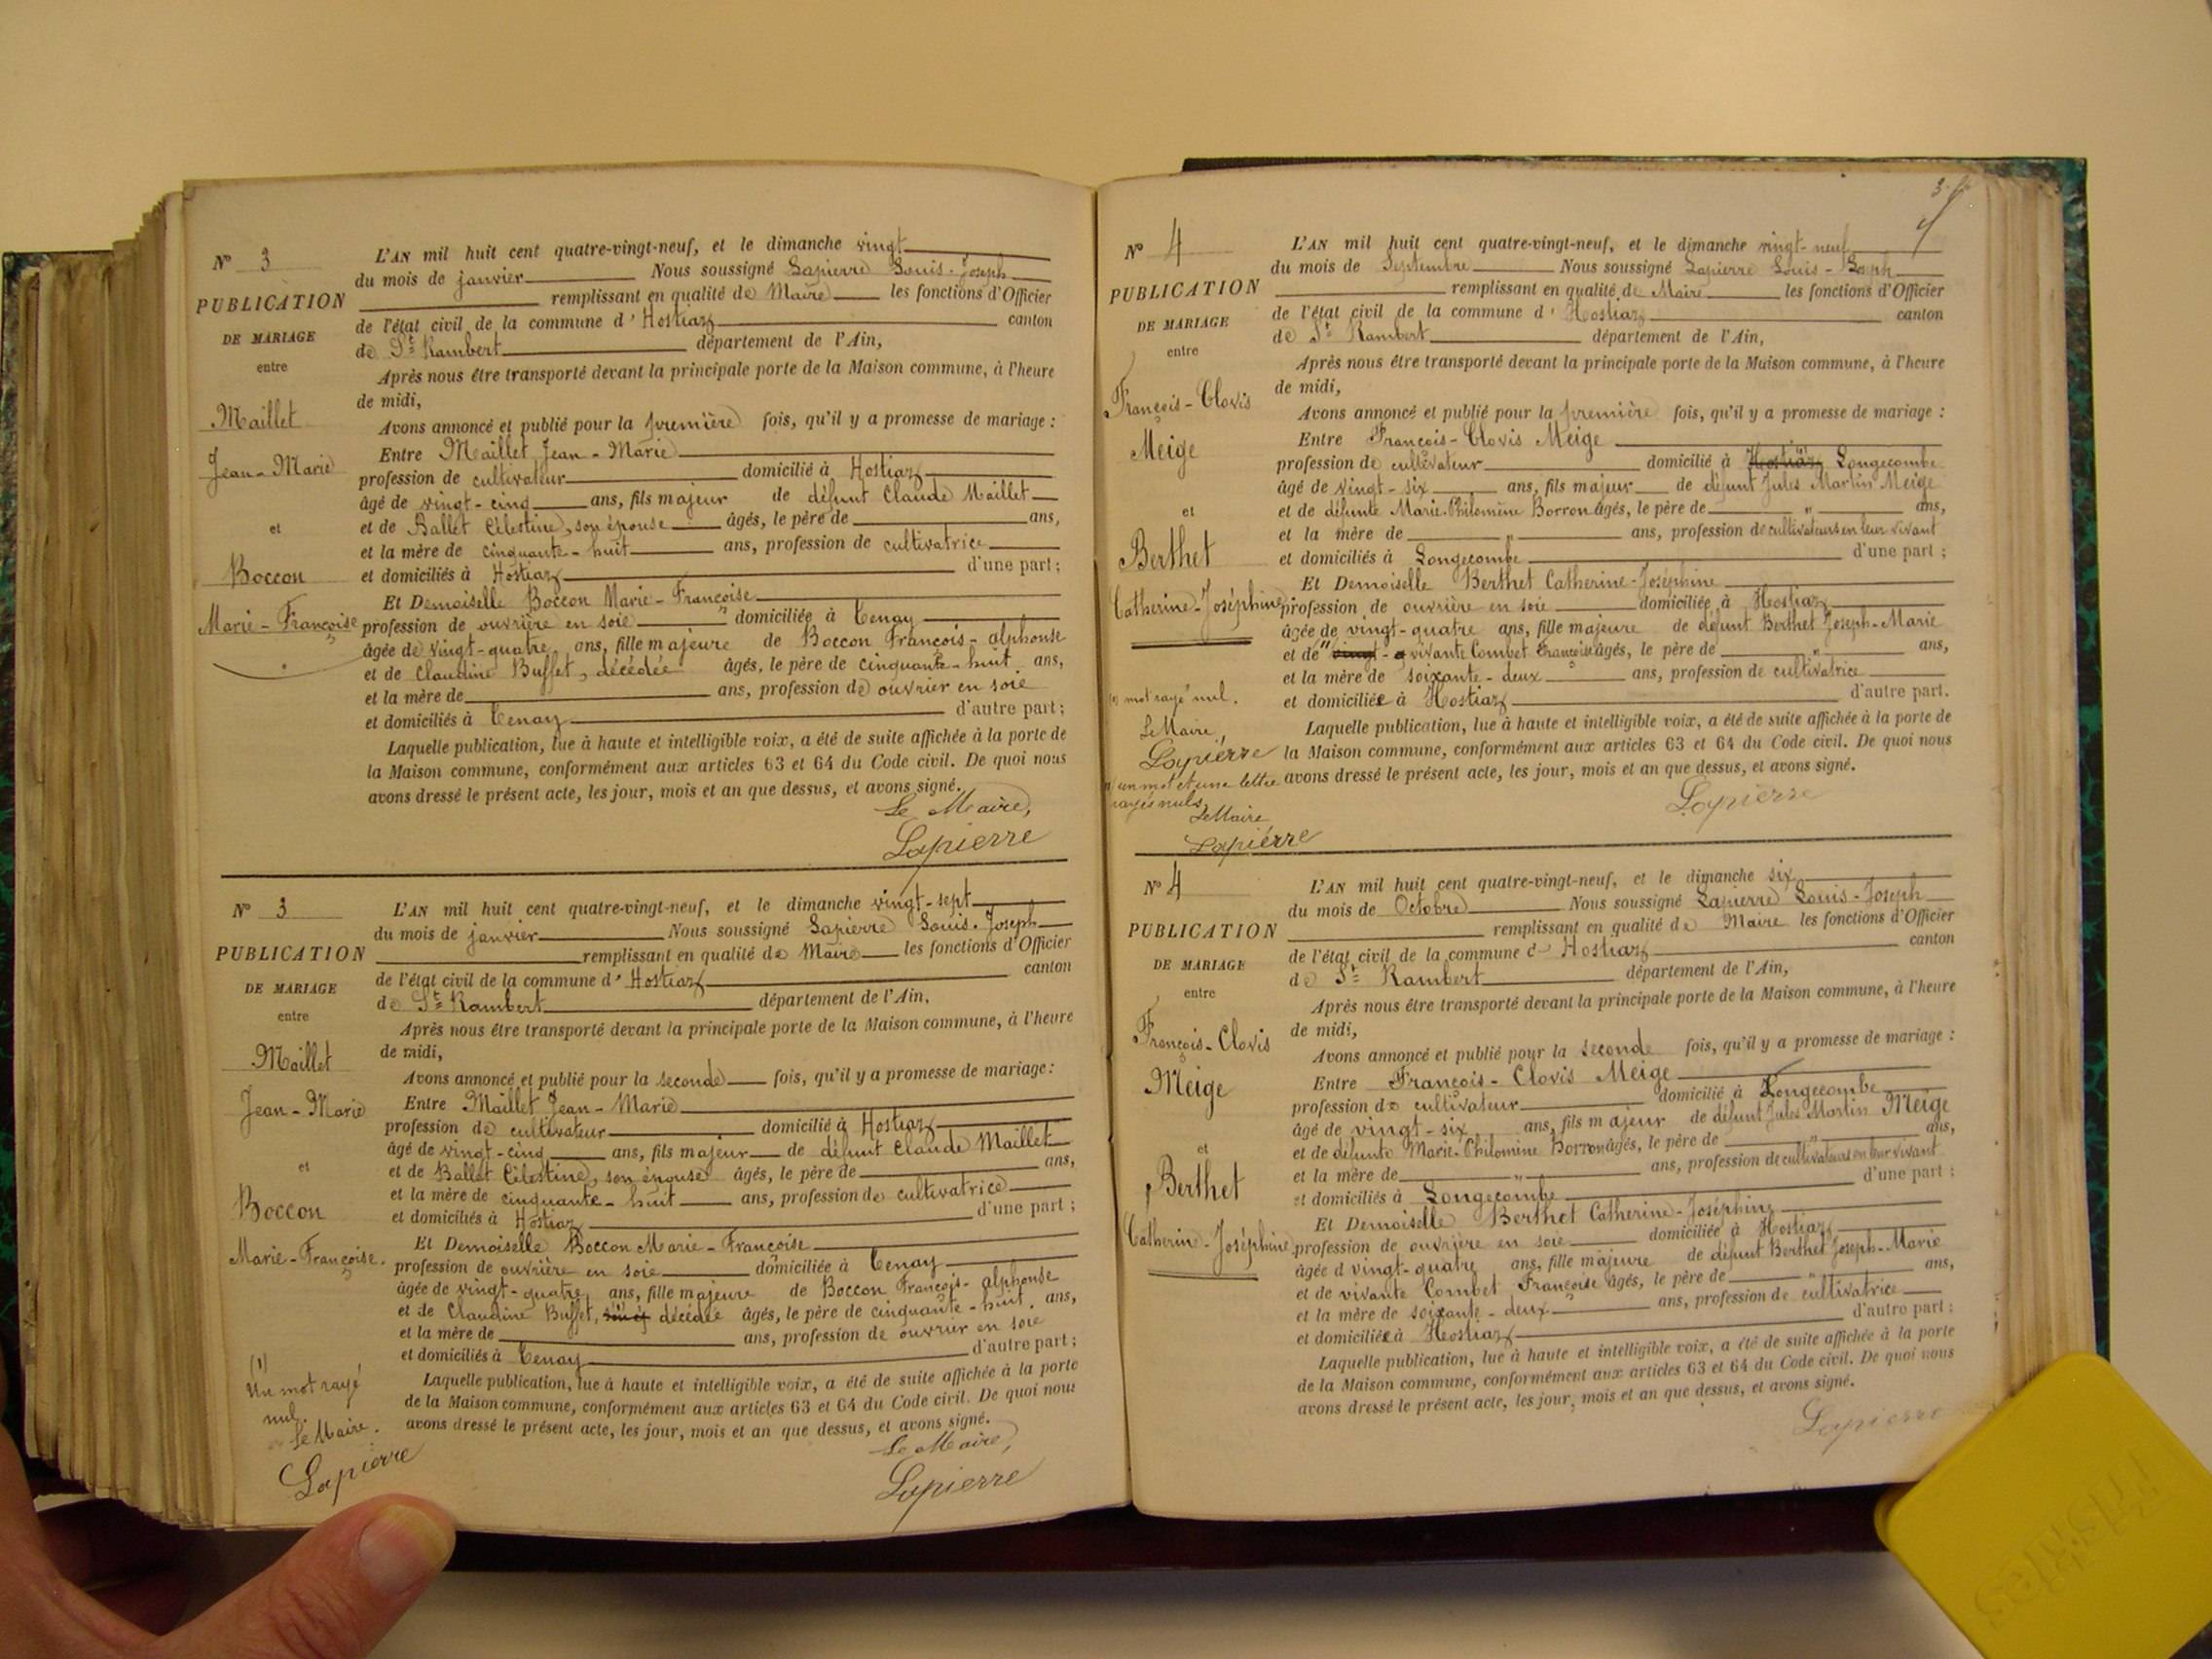 N° 3
PUBLICATION
DE MARIAGE
entre
Maillet
Jean-Marie
et
Boccon
Marie-Françoise
L'AN mil huit cent quatre-vingt-neuf, et le dimanche vingt
du mois de janvier Nous soussigné Lapierre Louis-Joseph
remplissant en qualité de Maire les fonctions d'Officier
de l'état civil de la commune d'Hostiaz canton
de St Rambert département de l'Ain,
Après nous être transporté devant la principale porte de la Maison commune, à l'heure
de midi,
Avons annoncé et publié pour la première fois, qu'il y a promesse de mariage :
Entre Maillet Jean-Marie
profession de cultivateur domicilié à Hostiaz
âgé de vingt-cinq ans, fils majeur de défunt Claude Maillet
et de Ballet Célestine, son épouse âgés, le père de ans,
et la mère de cinquante-huit ans, profession de cultivatrice
et domiciliés à Hostiaz d'une part ;
Et Demoiselle Boccon Marie-Françoise
profession de ouvrière en soie domiciliée à Tenay
âgée de vingt-quatre ans, fille majeure de Boccon François-alphonse
et de Claudine Buffet, décédée âgés, le père de cinquante-huit ans,
et la mère de ans, profession de ouvrier en soie
et domiciliés à Tenay d'autre part ;
Laquelle publication, lue à haute et intelligible voix, a été de suite affichée à la porte de
la Maison commune, conformément aux articles 63 et 64 du Code civil. De quoi nous
avons dressé le présent acte, les jour, mois et an que dessus, et avons signé.
Le Maire,
Lapierre
N° 3
PUBLICATION
DE MARIAGE
entre
Maillet
Jean-Marie
et
Boccon
Marie-Françoise.
(1)
Un mot rayé
nul.
Le Maire.
Lapierre
L'AN mil huit cent quatre-vingt-neuf, et le dimanche vingt-sept
du mois de janvier Nous soussigné Lapierre Louis-Joseph
remplissant en qualité de Maire les fonctions d'Officier
de l'état civil de la commune d'Hostiaz canton
de St Rambert département de l'Ain,
Après nous être transporté devant la principale porte de la Maison commune, à l'heure
de midi,
Avons annoncé et publié pour la seconde fois, qu'il y a promesse de mariage :
Entre Maillet Jean-Marie
profession de cultivateur domicilié à Hostiaz
âgé de vingt-cinq ans, fils majeur de défunt Claude Maillet
et de Ballet Célestine, son épouse âgés, le père de ans,
et la mère de cinquante-huit ans, profession de cultivatrice
et domiciliés à Hostiaz d'une part ;
Et Demoiselle Boccon Marie-Françoise
profession de ouvrière en soie domiciliée à Tenay
âgée de vingt-quatre ans, fille majeure de Boccon François-alphonse
et de Claudine Buffet, décédée âgés, le père de cinquante-huit. ans,
et la mère de ans, profession de ouvrier en soie
et domiciliés à Tenay d'autre part ;
Laquelle publication, lue à haute et intelligible voix, a été de suite affichée à la porte
de la Maison commune, conformément aux articles 63 et 64 du Code civil. De quoi nous
avons dressé le présent acte, les jour, mois et an que dessus, et avons signé.
Le Maire,
Lapierre
N° 4
PUBLICATION
DE MARIAGE
entre
François-Clovis
Meige
et
Berthet
Catherine-Joséphine
mot rayé nul.
Le Maire,
Lapierre
un mot et une lettre
rayés nuls
Le Maire
Lapierre
L'AN mil huit cent quatre-vingt-neuf, et le dimanche vingt-neuf
du mois de Septembre Nous soussigné Lapierre Louis-Joseph
remplissant en qualité de Maire les fonctions d'Officier
de l'état civil de la commune d'Hostiaz canton
de St Rambert département de l'Ain,
Après nous être transporté devant la principale porte de la Maison commune, à l'heure
de midi,
Avons annoncé et publié pour la première fois, qu'il y a promesse de mariage :
Entre François-Clovis Meige
profession de cultivateur domicilié à Hostiaz Longecombe
âgé de vingt-six ans, fils majeur de défunt Jules Martin Meige
et de défunte Marie-Philomine Borron âgés, le père de " ans,
et la mère de " ans, profession de cultivateurs en leur vivant
et domiciliés à Longecombe d'une part ;
Et Demoiselle Berthet Catherine-Joséphine
profession de ouvrière en soie domiciliée à Hostiaz
âgée de vingt-quatre ans, fille majeure de défunt Berthet Joseph-Marie
et de vivante Combet Françoise âgés, le père de " ans,
et la mère de soixante-deux ans, profession de cultivatrice
et domiciliée à Hostiaz d'autre part.
Laquelle publication, lue à haute et intelligible voix, a été de suite affichée à la porte de
la Maison commune, conformément aux articles 63 et 64 du Code civil. De quoi nous
avons dressé le présent acte, les jour, mois et an que dessus, et avons signé.
Lapierre
N° 4
PUBLICATION
DE MARIAGE
entre
François-Clovis
Meige
et
Berthet
Catherine-Joséphine
L'AN mil huit cent quatre-vingt-neuf, et le dimanche six
du mois de Octobre Nous soussigné Lapierre Louis-Joseph
remplissant en qualité de Maire les fonctions d'Officier
de l'état civil de la commune d'Hostiaz canton
de St Rambert département de l'Ain,
Après nous être transporté devant la principale porte de la Maison commune, à l'heure
de midi,
Avons annoncé et publié pour la seconde fois, qu'il y a promesse de mariage :
Entre François-Clovis Meige
profession de cultivateur domicilié à Longecombe
âgé de vingt-six ans, fils majeur de défunt Jules Martin Meige
et de défunte Marie-Philomine Borron âgés, le père de " ans,
et la mère de " ans, profession de cultivateurs en leur vivant
et domiciliés à Longecombe d'une part ;
Et Demoiselle Berthet Catherine-Joséphine
profession de ouvrière en soie domiciliée à Hostiaz
âgée d vingt-quatre ans, fille majeure de défunt Berthet Joseph-Marie
et de vivante Combet Françoise âgés, le père de " ans,
et la mère de soixante-deux ans, profession de cultivatrice
et domiciliée à Hostiaz d'autre part ;
Laquelle publication, lue à haute et intelligible voix, a été de suite affichée à la porte
de la Maison commune, conformément aux articles 63 et 64 du Code civil. De quoi nous
avons dressé le présent acte, les jour, mois et an que dessus, et avons signé.
Lapierre